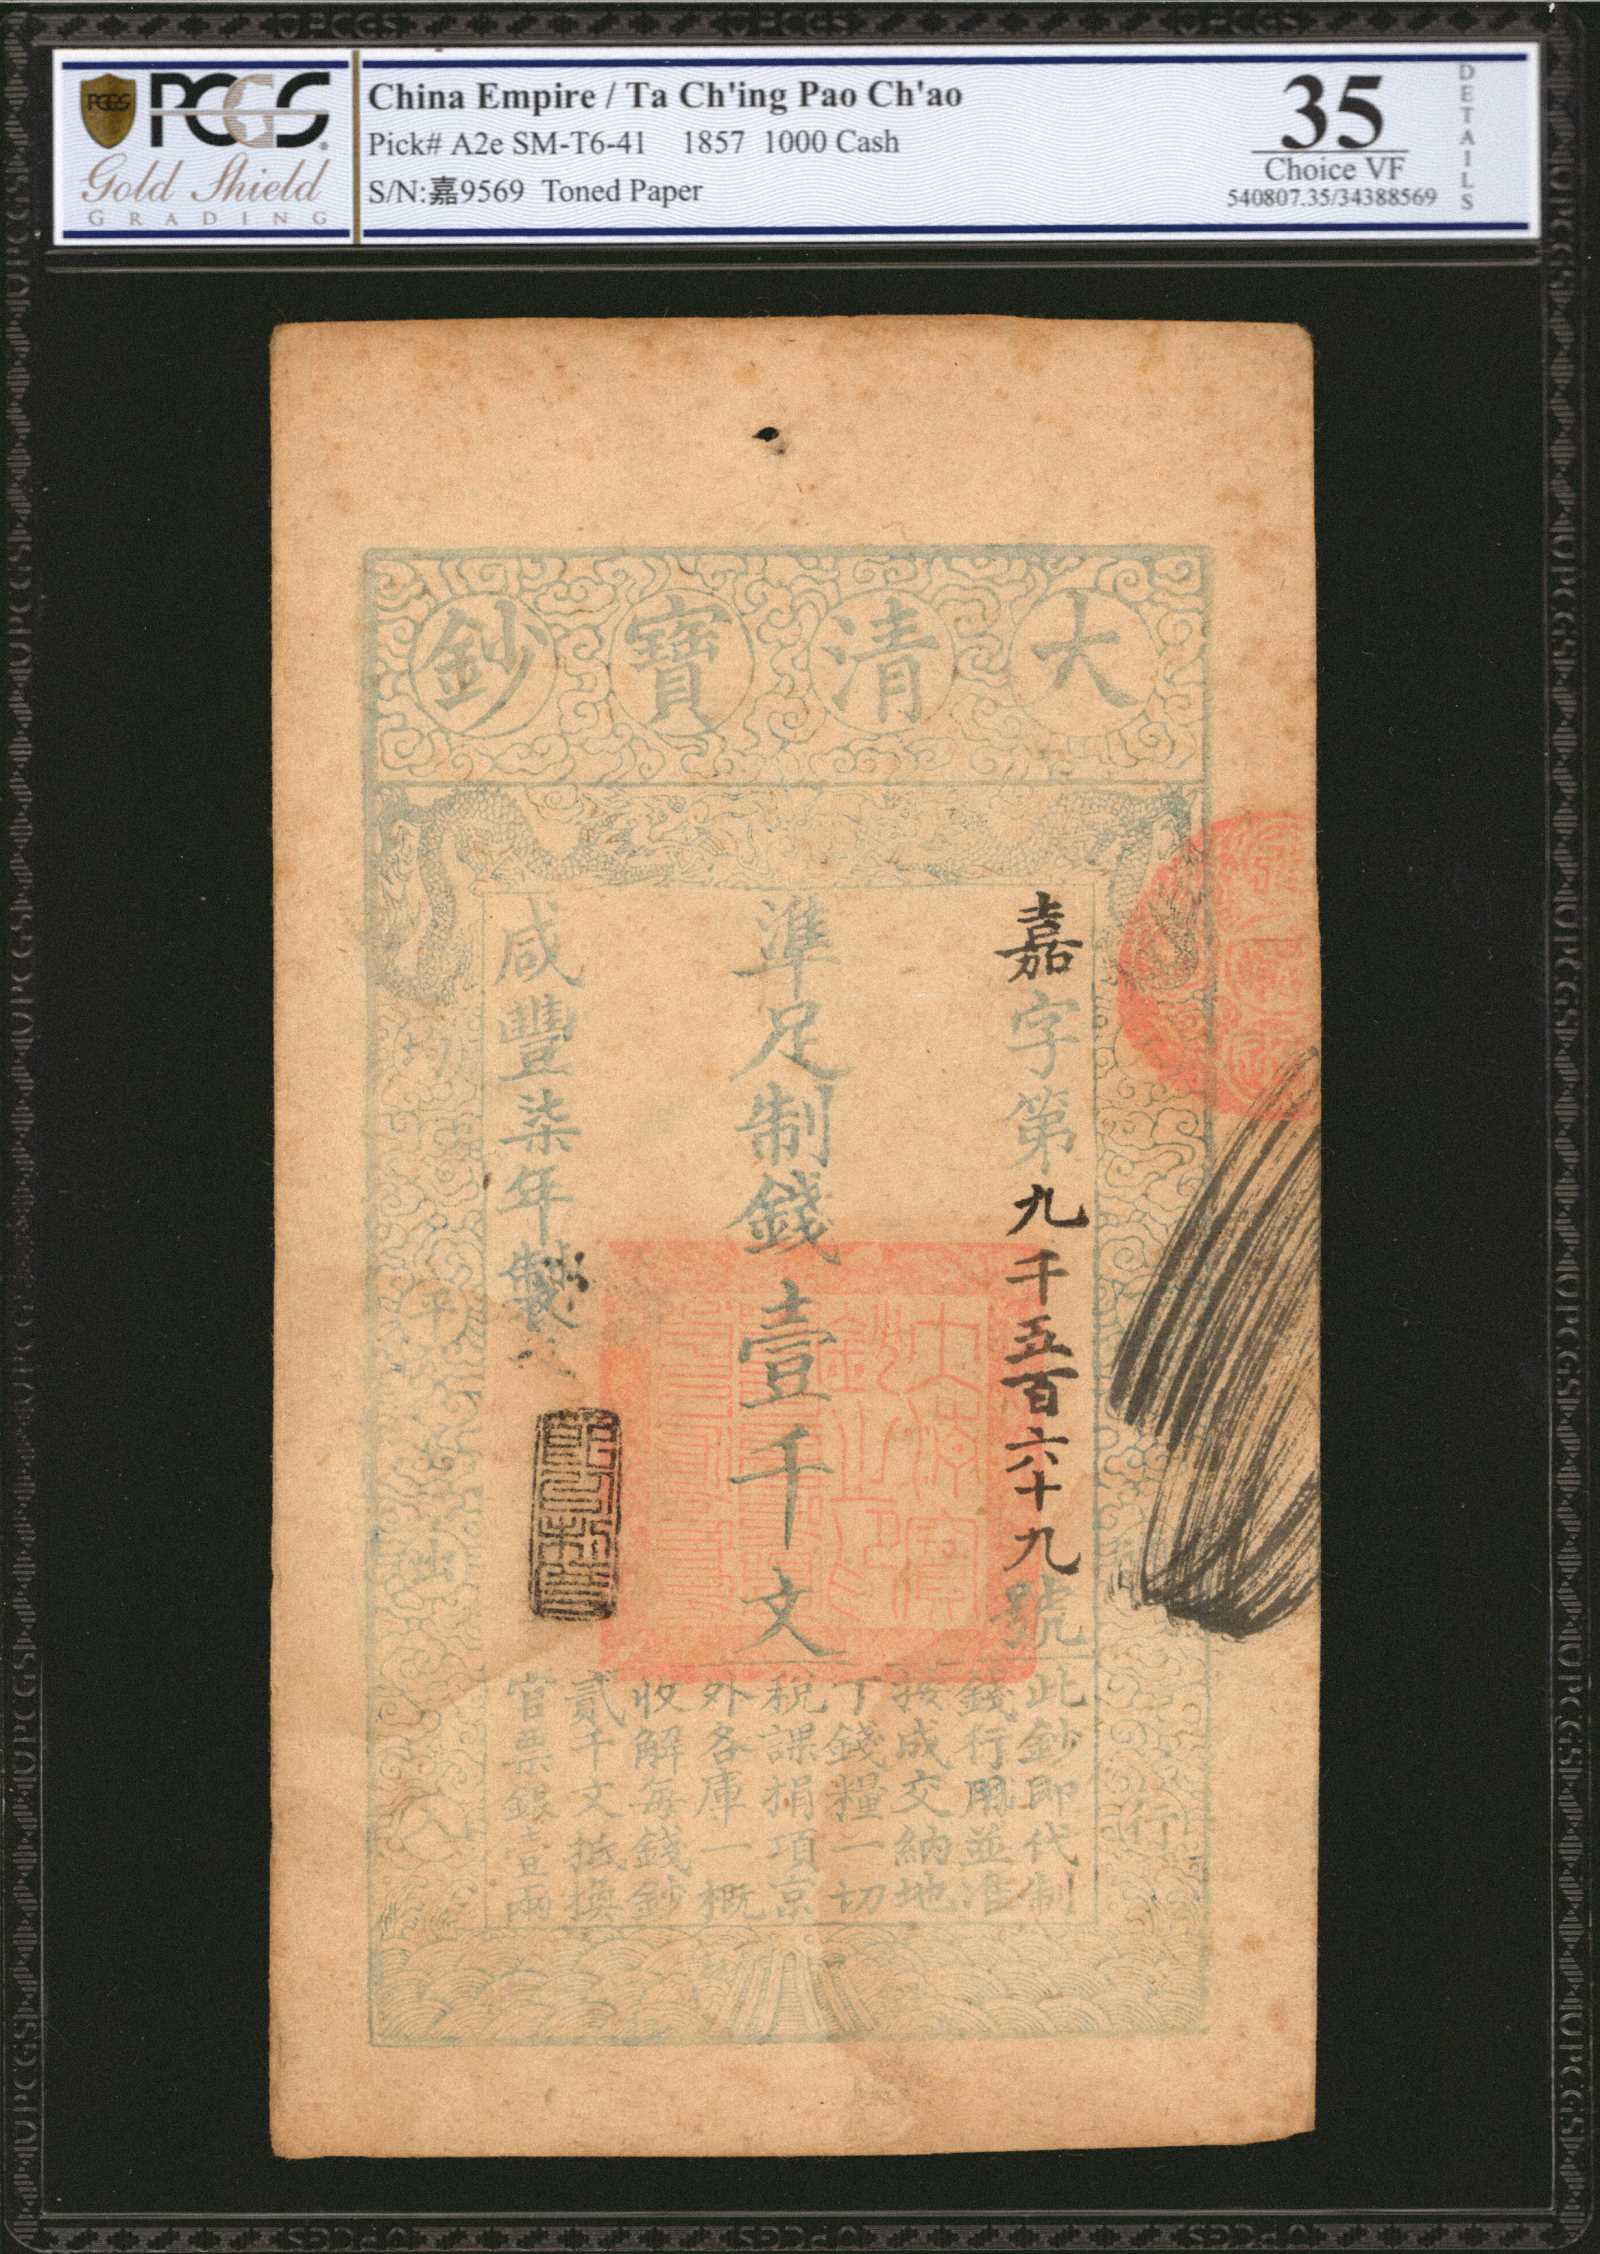 PCGS
PCGS
Gold Shield
GRADING
China Empire / Ta Ch'ing Pao Ch'ao
Pick# A2e SM-T6-41 1857 1000 Cash
S/N:嘉9569 Toned Paper
35
Choice VF
540807.35/34388569
DETAILS
大清寶鈔
嘉字第九千五百六十九號
準足制錢壹千文
咸豐柒年製
此鈔即代制
錢行用並准
按成交納地
丁錢糧一切
稅課捐項京
外各庫一概
收解每錢鈔
貳千文抵換
官票銀壹兩
行
平